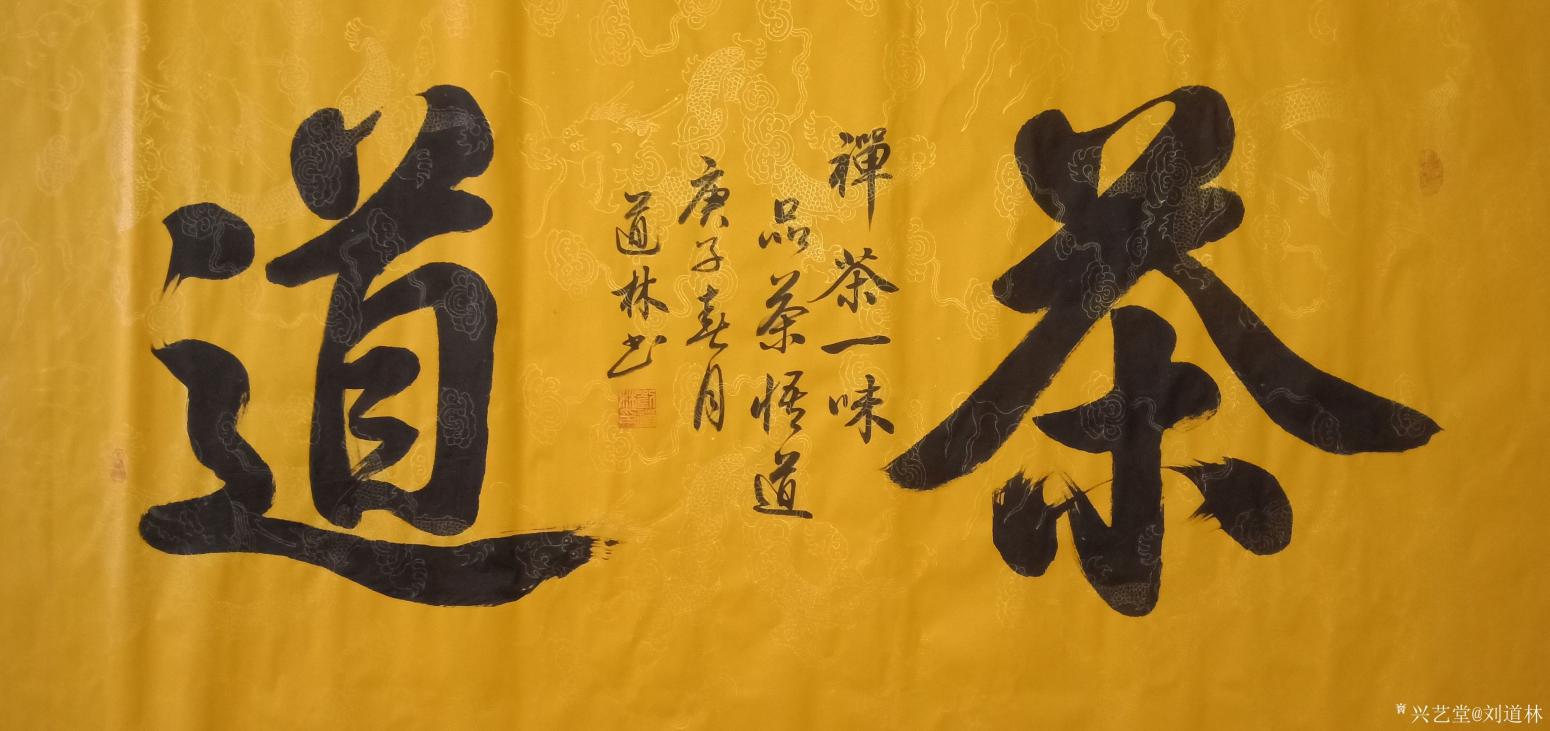 茶道
禪茶一味
品茶悟道
庚子春月
道林书
兴艺堂@刘道林